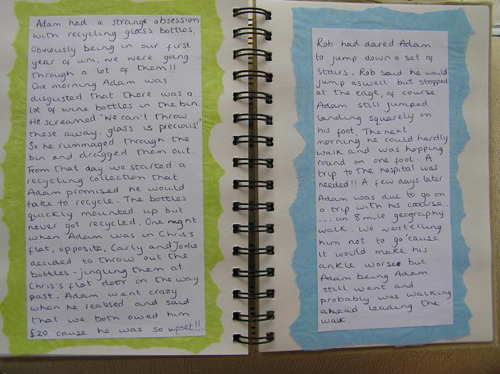 Adam had a strange obsession
with recycling glass bottles.
Obviously being in our first
year of uni, we were going
through a lot of them!!
One morning Adam was
disgusted that there was a
lot of wine bottles in the bin.
He screamed "We can't throw
these away, glass is precious!"
So he rummaged through the
bin and dragged them out.
From that day we started a
recycling collection that
Adam promised he would
take to recycle. The bottles
quickly mounted up but
never got recycled. One night
when Adam was in Chris's
flat, opposite, Carly and
decided to throw out the
bottles - jingling them at
Chris's flat door on the way
past. Adam went crazy
when he realised and said
that we both owed him
£20 cause he was so upset!!
Rob had dared Adam
to jump down a set of
stairs. Rob said he would
jump aswell but stopped
at the edge, of course
Adam still jumped,
landing squarely on
his foot. The next
morning he could hardly
walk and was hopping
round on one foot. A
trip to the hospital was
needed!! A few days later
Adam was due to go on
a trip with his course...
... an 8 mile geography
walk. We were telling
him not to go cause
it would make his
ankle worse but
Adam being Adam
still went and
probably was walking
ahead leading the
walk.